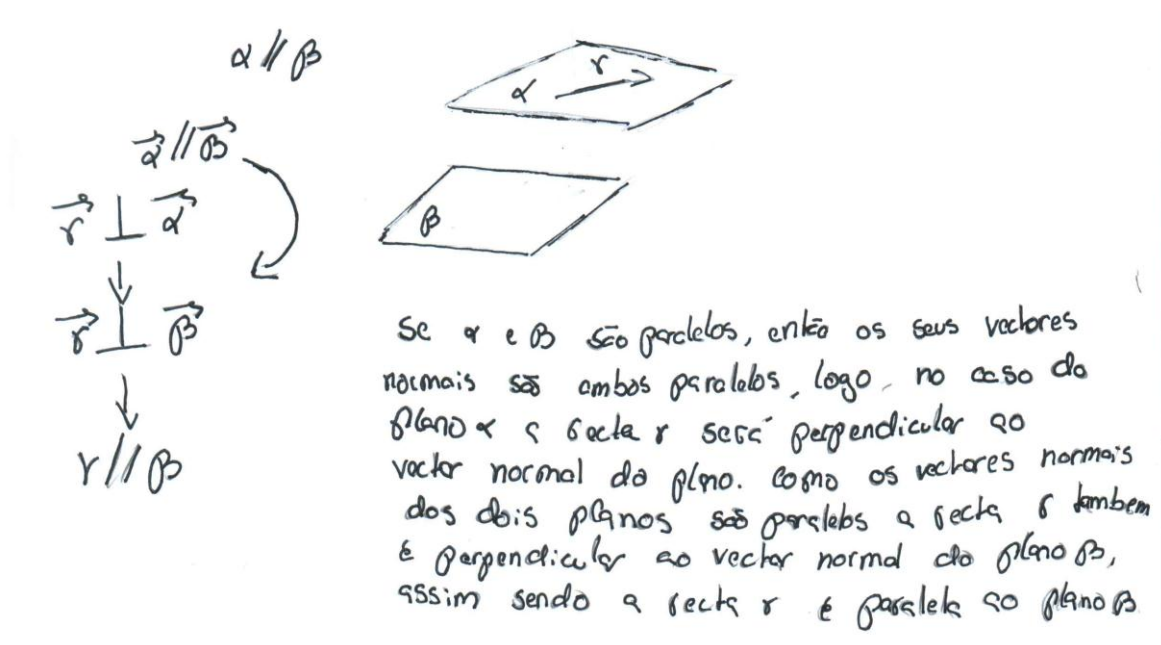 α // β
r
α
α⃗ // β⃗
r⃗ ⊥ α⃗
β
↓
r⃗ ⊥ β⃗
↓
r // β
Se α e β são paralelos, então os seus vectores
normais são ambos paralelos, logo, no caso do
plano α a recta r será perpendicular ao
vector normal do plano. Como os vectores normais
dos dois planos são paralelos a recta r tambem
é perpendicular ao vector normal do plano β,
assim sendo a recta r é paralela ao plano β